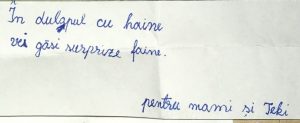 În dulapul cu haine
vei găsi surprize faine.
pentru mami și Teki